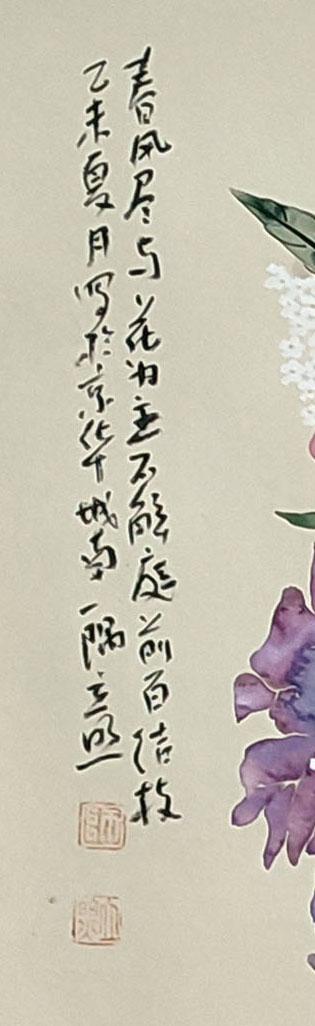 春风尽与花为主不解庭前百结枝
乙未夏月写於京华城南一隅